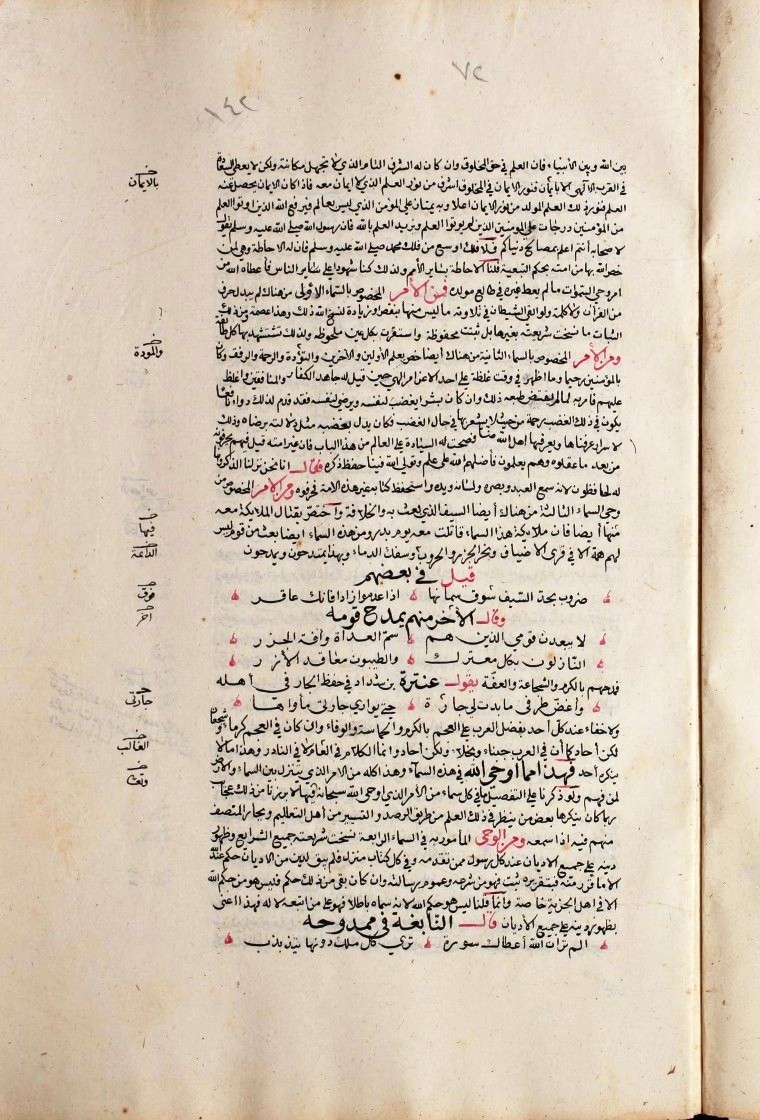 ٧٢
١٤٢
بين الله وبين الأنبياء فان العلم في حق المخلوق وان كان له الشرف التام الذي لا تجهل مكانته ولكن لا يعطي السعادة
في القرب الالهي الا بالايمان فنور الايمان في المخلوق اشرف من نور العلم الذي لا ايمان معه فاذا كان الايمان يحصل عنه
العلم فنور ذلك العلم المولد من نور الايمان اعلا وبه يمتاز على المؤمن الذي ليس بعالم فيرفع الله الذين اوتوا العلم
من المؤمنين درجات على المؤمنين الذين لم يوتوا العلم ويزيد العلم بالله فان رسول الله صلى الله عليه وسلم يقول
لاصحابه انتم اعلم بمصالح دنياكم فلا فلك اوسع من فلك محمد صلى الله عليه وسلم فان له الاحاطة وهي لمن
خصه الله بها من امته بحكم التبعية فلنا الاحاطة بساير الامم ولذلك كنا شهدا على ساير الناس فاعطاه الله من
امر وحي السموات ما لم يعط غيره في طالع مولده فمن الأمر المخصوص بالسماء الاولى من هناك لم يبدل حرف
من القرآن ولا كلمة ولو القى الشيطان في تلاوته ما ليس منها بنقص او زيادة لنسخ الله ذلك وهذا عصمة ومن ذلك
الثبات ما نسخت شريعته بغيرها بل ثبتت محفوظة واستقرت بكل عين ملحوظه ولذلك تستشهد بها كل طائفة
ومن الأمر المخصوص بالسماء الثانية من هناك أيضا خص بعلم الأولين والآخرين والتؤدة والرحمة والرفق وكان
بالمؤمنين رحيما وما اظهر في وقت غلظة على احد الا عن امر الهي حين قيل له جاهد الكفار والمنافقين واغلظ
عليهم فامر به لما لم يقتض طبعه ذلك وان كان بشرا يغضب لنفسه ويرضى لنفسه فقد قدم لذلك دواء نافعا
يكون في ذلك الغضب رحمة من حيث لا يشعر بها في حال الغضب فكان يدل بغضبه مثل دلالته برضاه وذلك
لاسرار عرفناها ويعرفها اهل الله منا فصحت له السيادة على العالم من هذا الباب فان غير امته قيل فيهم يحرفونه
من بعد ما عقلوه وهم يعلمون فأضلهم الله على علم وتولى الله فينا حفظ ذكره فقال انا نحن نزلنا الذكر وانا
له لحافظون لانه سمع العبد وبصره ولسانه ويده واستحفظ كتابه غير هذه الامة فحرفوه ومن الأمر المخصوص من
وحي السماء الثالثة من هناك أيضا السيف الذي بعث به والخلافة واختص بقتال الملائكة معه
منها أيضا فان ملائكة هذا السماء قاتلت معه يوم بدر ومن هذه السماء ايضا بعث من قوم ليس
لهم همة الا في قرى الاضياف ونحر الجزر والحروب وسفك الدماء وبهذا يتمدحون ويمدحون
قيل في بعضهم
ضروب بحد السيف سوق سمانها اذا عدموا زادا فانك عاقر
وقال الأخر منهم يمدح قومه
لا يبعدن قومي الذين هم سم العداة وافة الجزر
النازلون بكل معترك والطيبون معاقد الأزر
فمدحهم بالكرم والشجاعة والعفة بقول عنترة بن شداد في حفظ الجار في اهله
واغض طرفي ما بدت لي جارة حتى يواري جارتي مأواها
ولا خفاء عند كل أحد بفضل العرب على العجم بالكرم والحماسة والوفاء وان كان في العجم كرماء وشجعان
لكن آحاد كما أن في العرب جبناء وبخلا ولكن أحاد وانما الكلام في الغالب لا في النادر وهذا مما لا
ينكره أحد فهذا مما أوحى الله في هذه السماء وهذا كله من الامر الذي يتنزل بين السماء والأرض
لمن فهم ولو ذكرنا على التفصيل ما في كل سماء من الأمر الذي اوحى الله سبحانه فيها لابرزنا من ذلك عجايب
ربما كان ينكرها بعض من ينظر في ذلك العلم من طريق الرصد والتسيير من أهل التعاليم ويحار المنصف
منهم فيه اذا سمعه ومن الوحى المأمور به في السماء الرابعة نسخت شريعته جميع الشرايع وظهور
دينه على جميع الاديان عند كل رسول ممن تقدمه وفي كل كتاب منزل فلم يبق لدين من الاديان حكم عند الله
الا ما قرر منه فبتقريره ثبت فهو من شرعه وعموم رسالته وان كان بقي من ذلك حكم فليس هو من حكم الله
الا في اهل الجزية خاصة وانما قلنا ليس هو حكم الله لانه سماه باطلا فهو على من اتبعه لا له فهذا اعنى
بظهور دينه على جميع الأديان قال النابغة في ممدوحه
الم تر ان الله أعطاك سورة ترى كل ملك دونها يتذبذب
بالايمان
والمودة
فيها
الدائمة
فوق
اخر
جارتي
الغالب